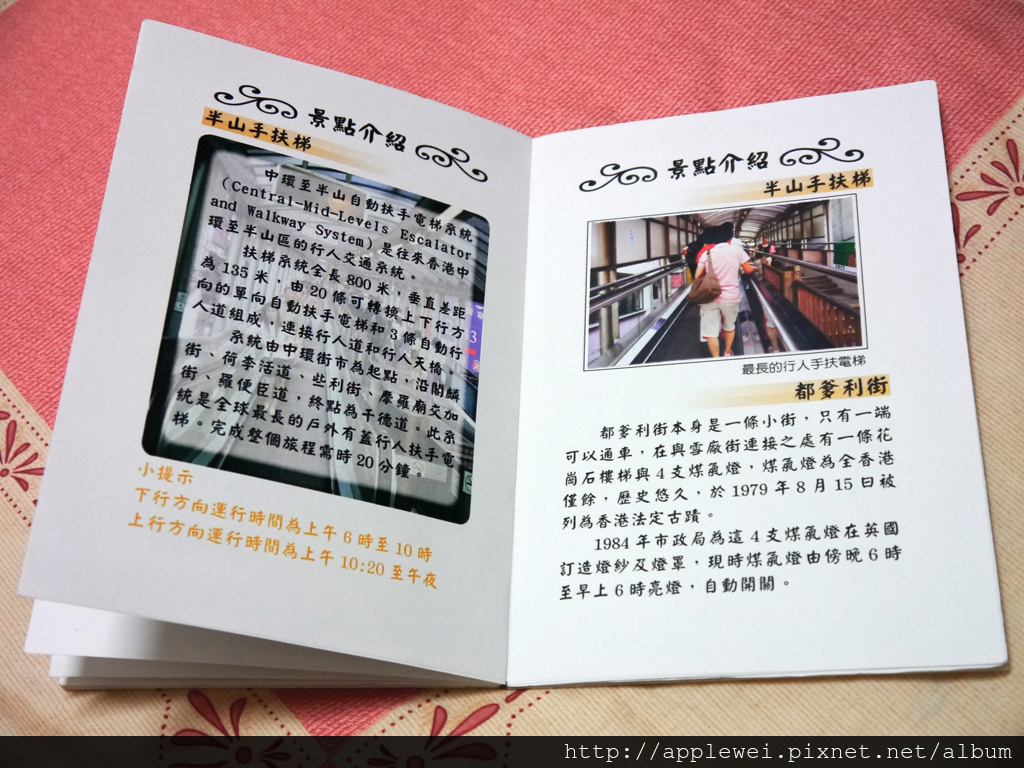 景點介紹
半山手扶梯
中環至半山自動扶手電梯系統
(Central-Mid-Levels Escalator
and Walkway System) 是往來香港中
環至半山區的行人交通系統。
扶梯系統全長 800 米，垂直差距
為 135 米，由 20 條可轉換上下行方
向的單向自動扶手電梯和 3 條自動行
人道組成，連接行人道和行人天橋。
系統由中環街市為起點，沿閣麟
街、荷李活道、些利街、摩羅廟交加
街、羅便臣道，終點為干德道。此系
統是全球最長的戶外有蓋行人扶手電
梯。完成整個旅程需時 20 分鐘。
小提示
下行方向運行時間為上午 6 時至 10 時
上行方向運行時間為上午 10:20 至午夜
景點介紹
半山手扶梯
最長的行人手扶電梯
都爹利街
都爹利街本身是一條小街，只有一端
可以通車，在與雪廠街連接之處有一條花
崗石樓梯與 4 支煤氣燈，煤氣燈為全香港
僅餘，歷史悠久，於 1979 年 8 月 15 日被
列為香港法定古蹟。
1984 年市政局為這 4 支煤氣燈在英國
訂造燈紗及燈罩，現時煤氣燈由傍晚 6 時
至早上 6 時亮燈，自動開關。
http://applewei.pixnet.net/album